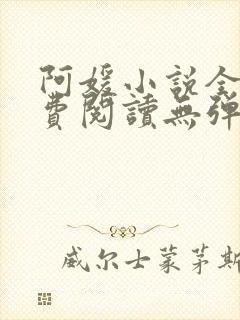 阿媛小说全
費閱讀無彈
威尔士蒙茅斯